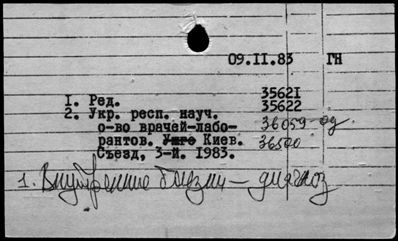 09.II.83 ГН
I. Ред. 35621
2. Укр. респ. науч. 35622
о-во врачей-лабо- 36059-од.
рантов. Киев. 36500
Съезд, 3-й. I983.
1. Внутренние болезни – диагноз